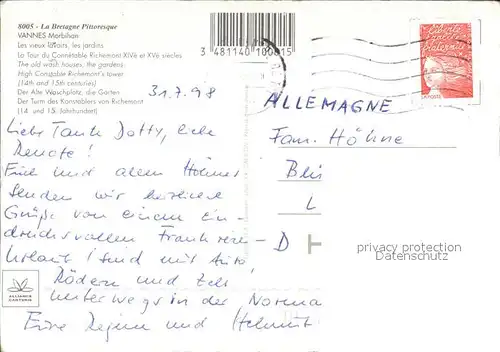 8005 - La Bretagne Pittoresque
VANNES Morbihan
Les vieux lavoirs, les jardins
La Tour du Connétable Richemont XIVe et XVe siècles
The old wash houses, the gardens
High Constable Richemont's tower
(14th and 15th centuries)
Der Alte Waschplatz, die Gärten
Der Turm des Konstablers von Richemont
(14. und 15. Jahrhundert)
3 481140 100915
LIBERTÉ
LA POSTE
31.7.98
ALLEMAGNE
Fam. Höhne
Liebe Tante Dotty, liebe
Renate!
Euch und allen Höhnes
senden wir herzliche
Grüße von einem Ein-
drucksvollen Frankreich-
Urlaub! Sind mit Auto,
Rädern und Zelt
unterwegs in der Norma
Eure Regina und Helmut
D
privacy protection
Datenschutz
ALLIANCE
CARTERIE